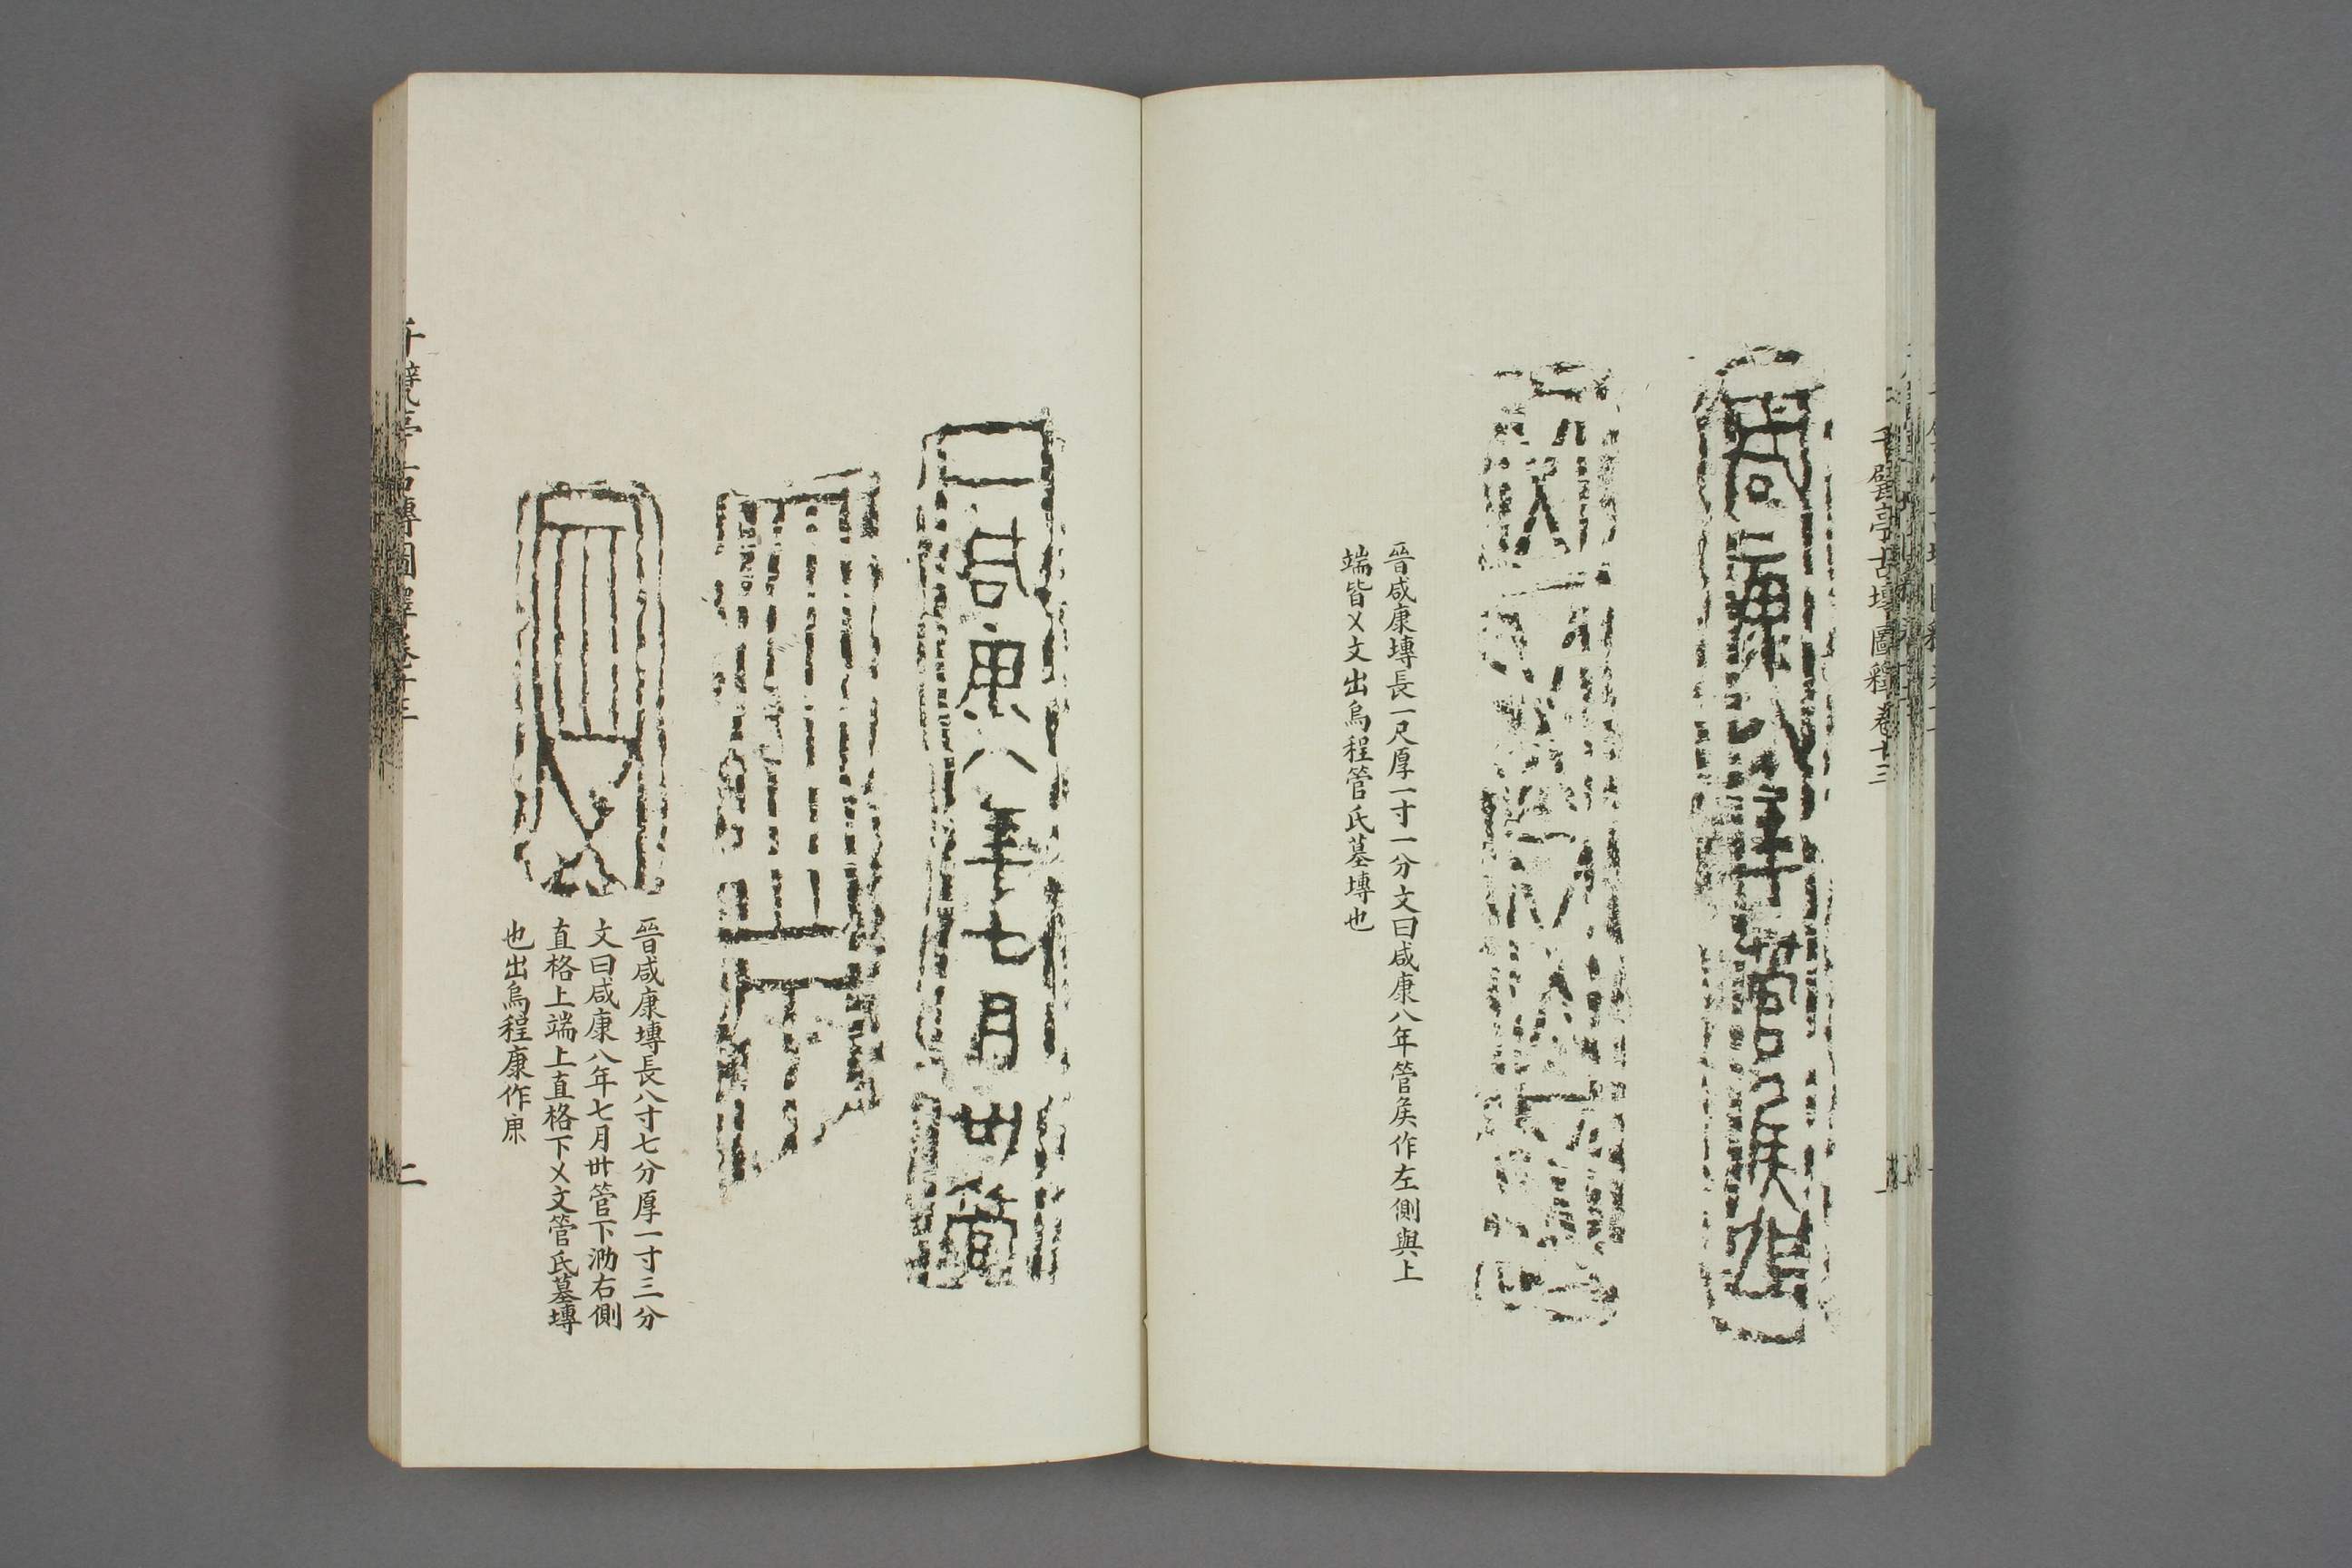 千甓亭古塼圖釋卷十三
一
咸康八年管侯作
晉咸康塼長一尺厚一寸一分文曰咸康八年管矦作左側與上
端皆㐅文出烏程管氏墓塼也
咸康八年七月卅管
晉咸康塼長八寸七分厚一寸三分
文曰咸康八年七月卅管下泐右側
直格上端上直格下㐅文管氏墓塼
也出烏程康作庚
千甓亭古塼圖釋卷十三
二